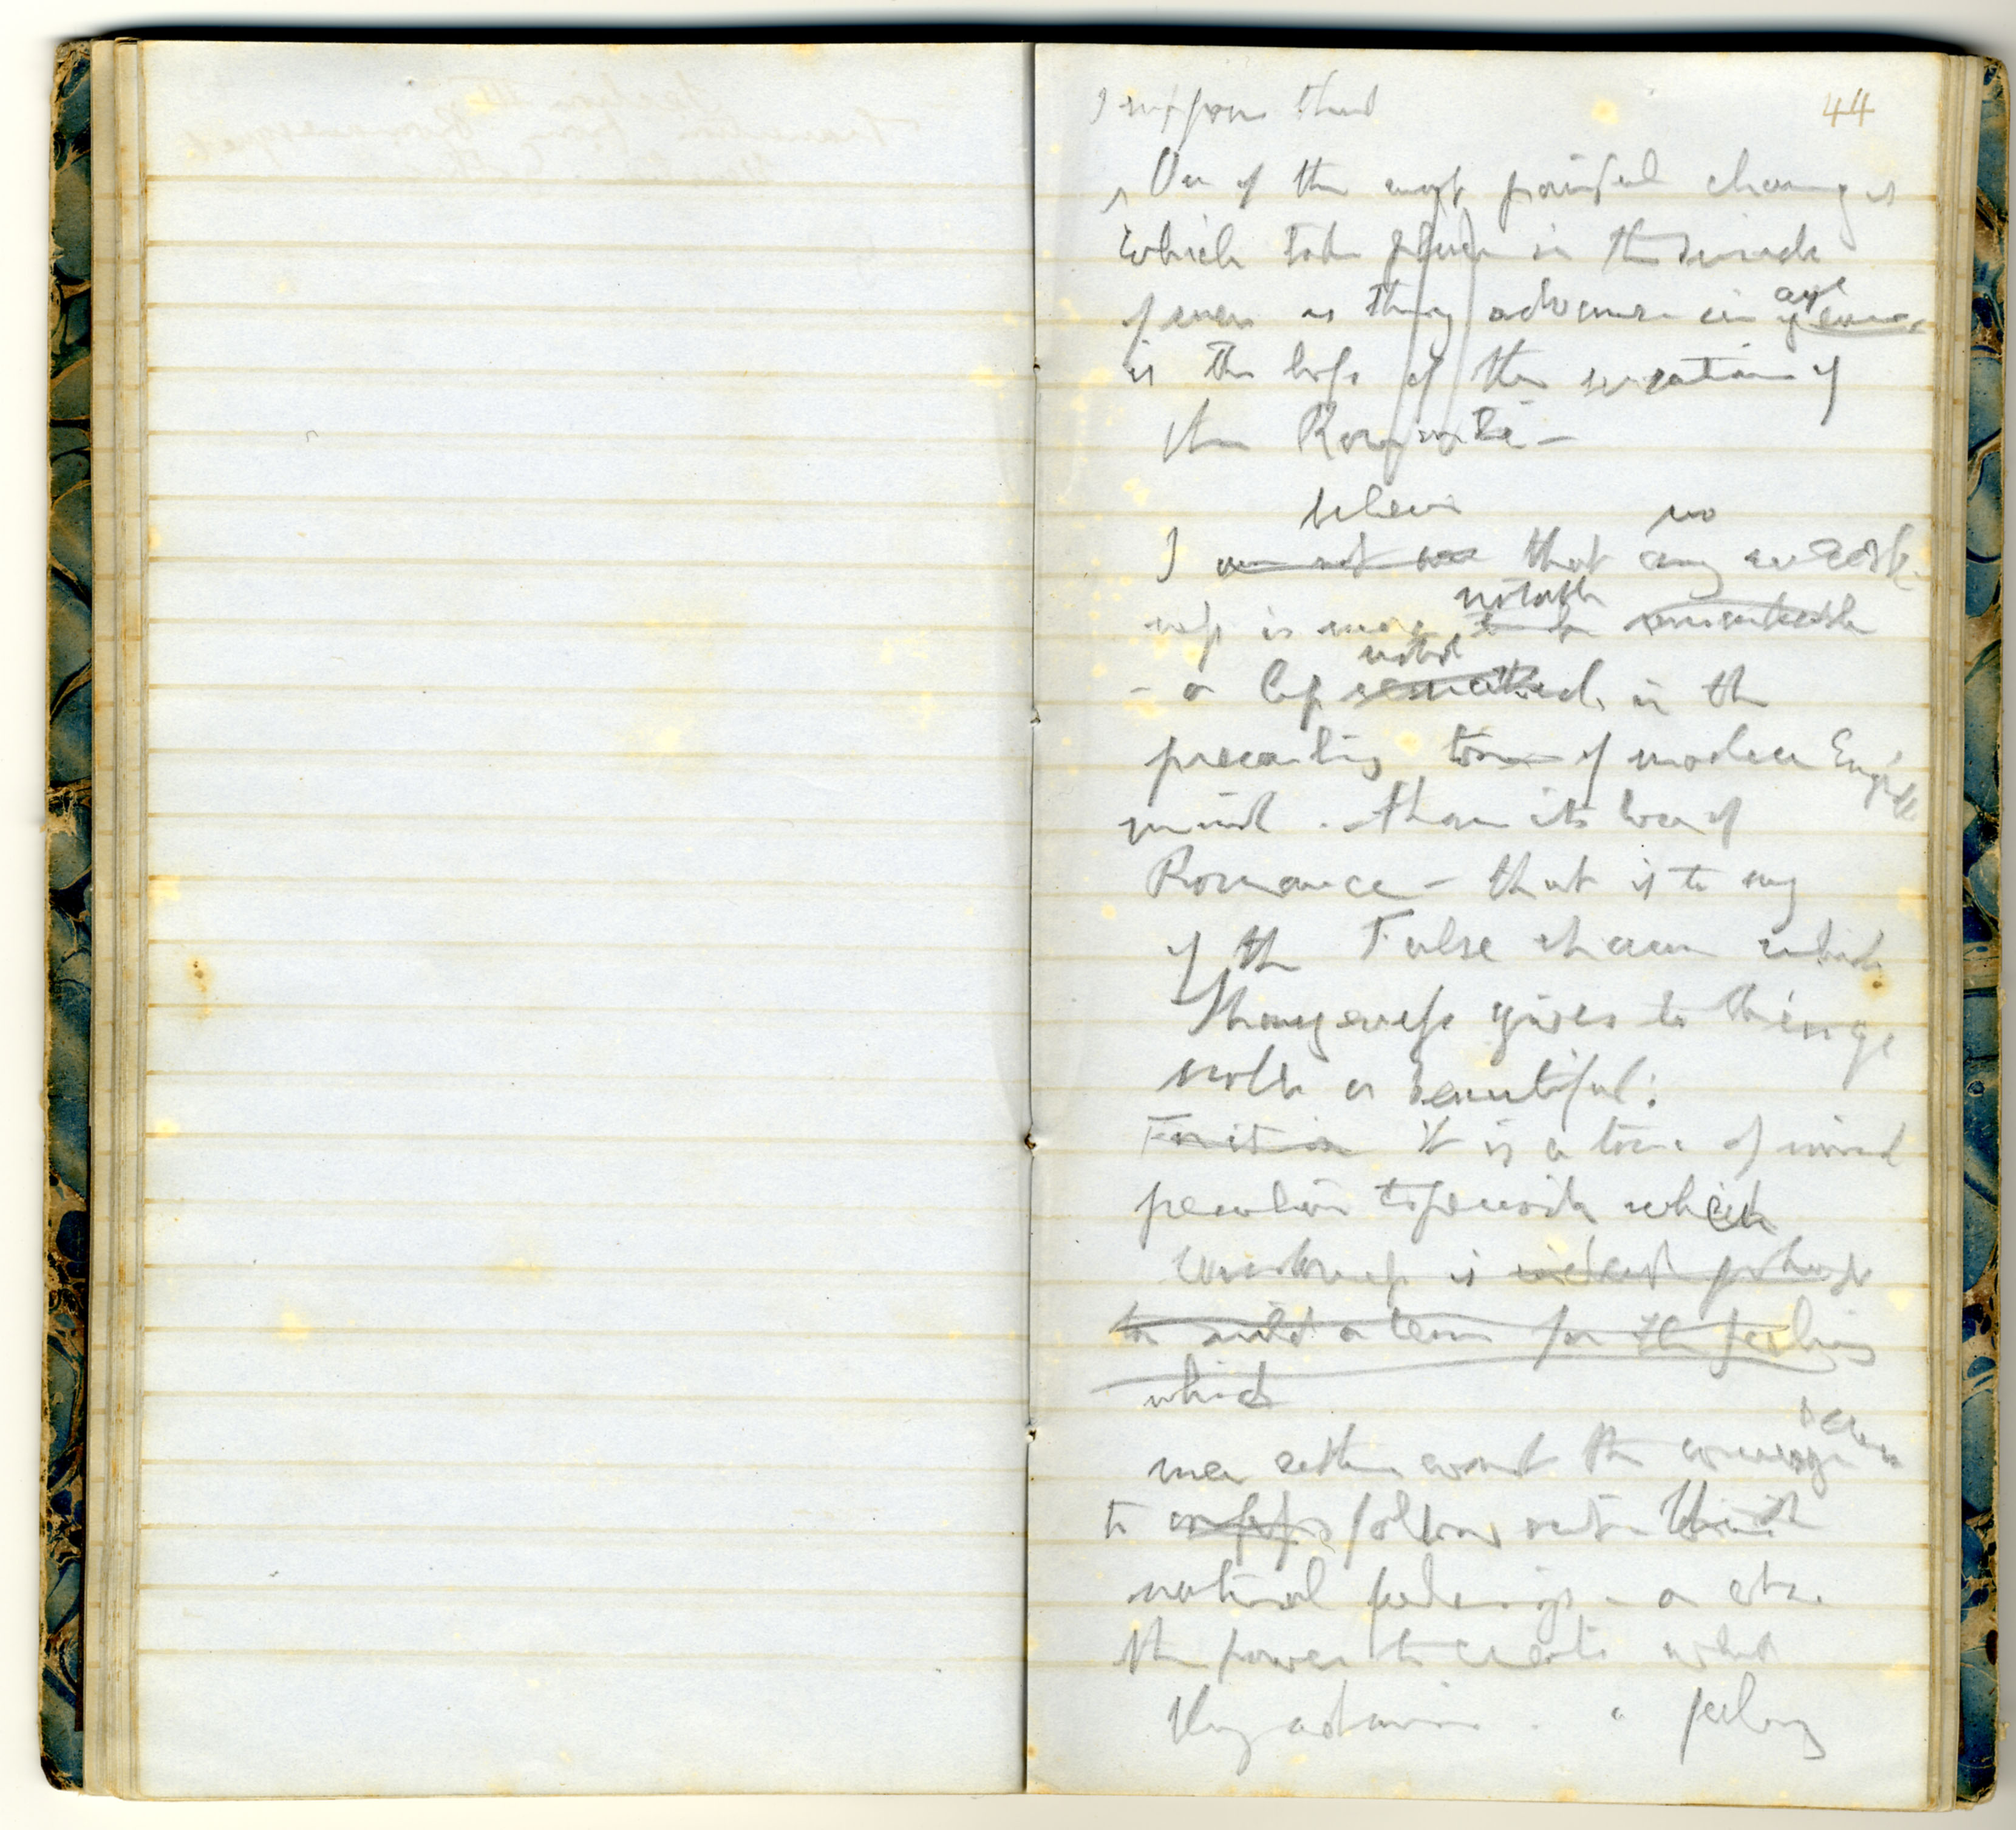 I suppose that
44
One of the most painful changes
which take place in the minds
age
of men as they advance in years
is the loss of the sensation of
the Romantic -
believe no
I am not that any weak
ness is more notable to be remarkable
noted
- or less in the
prevailing tone of modern English
mind . than its love of
Romance - that is to say
of the False charm which
Strangeness gives to things
noble or beautiful:
it is a tone of mind
peculiar to periods which
is perhaps
too mild a term for the feeling
which
men either want the courage
to follow out their
natural feelings - or else
the power to create what
they admire . a feeling